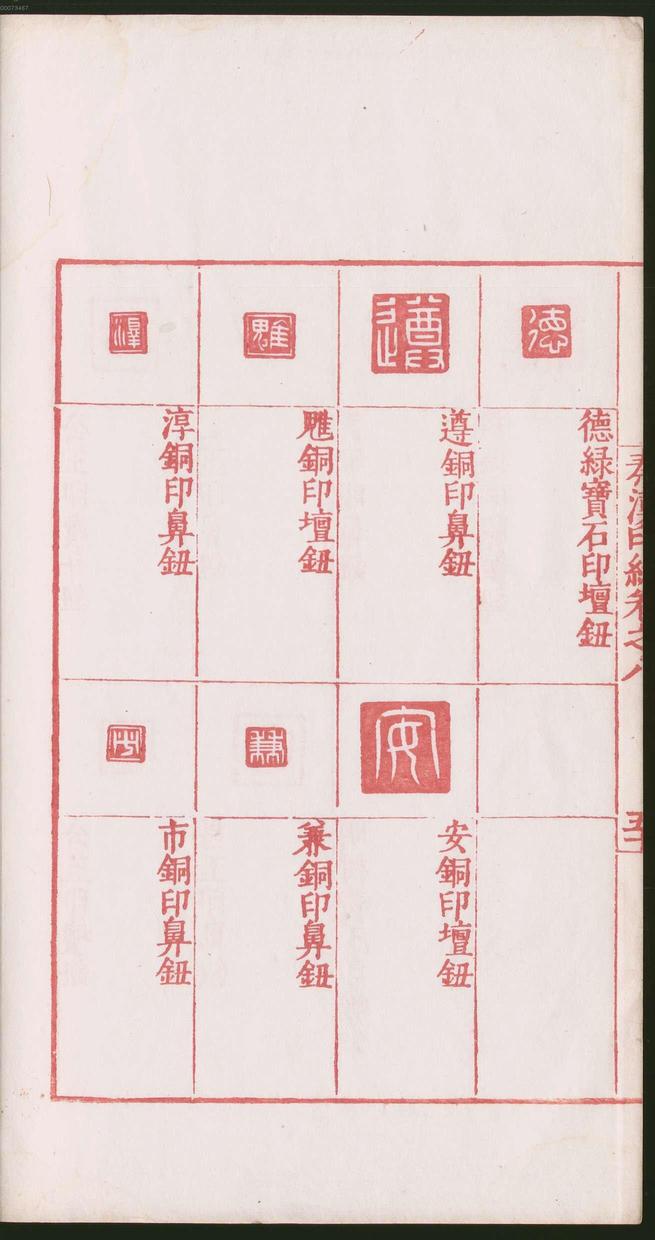 00073467
秦漢印統卷之八
五
德
德綠寶石印壇鈕
遵
遵銅印鼻鈕
安
安銅印壇鈕
雕銅印壇鈕
兼
兼銅印鼻鈕
淳
淳銅印鼻鈕
市
市銅印鼻鈕